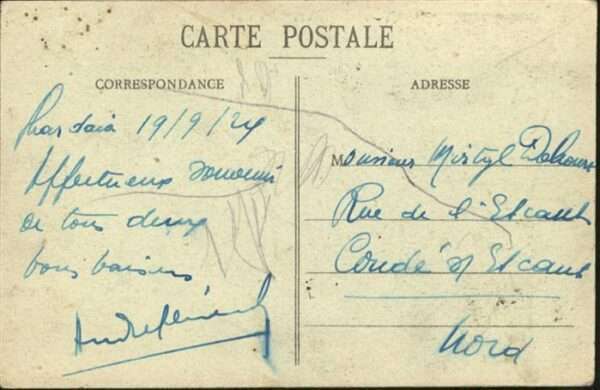 CARTE POSTALE
CORRESPONDANCE
Ghardaia 19/9/24
Affectueux souvenir
de tous deux
bons baisers
ADRESSE
Monsieur Mirtyl
Rue de l'Escaut
Condé s/ Escaut
Nord